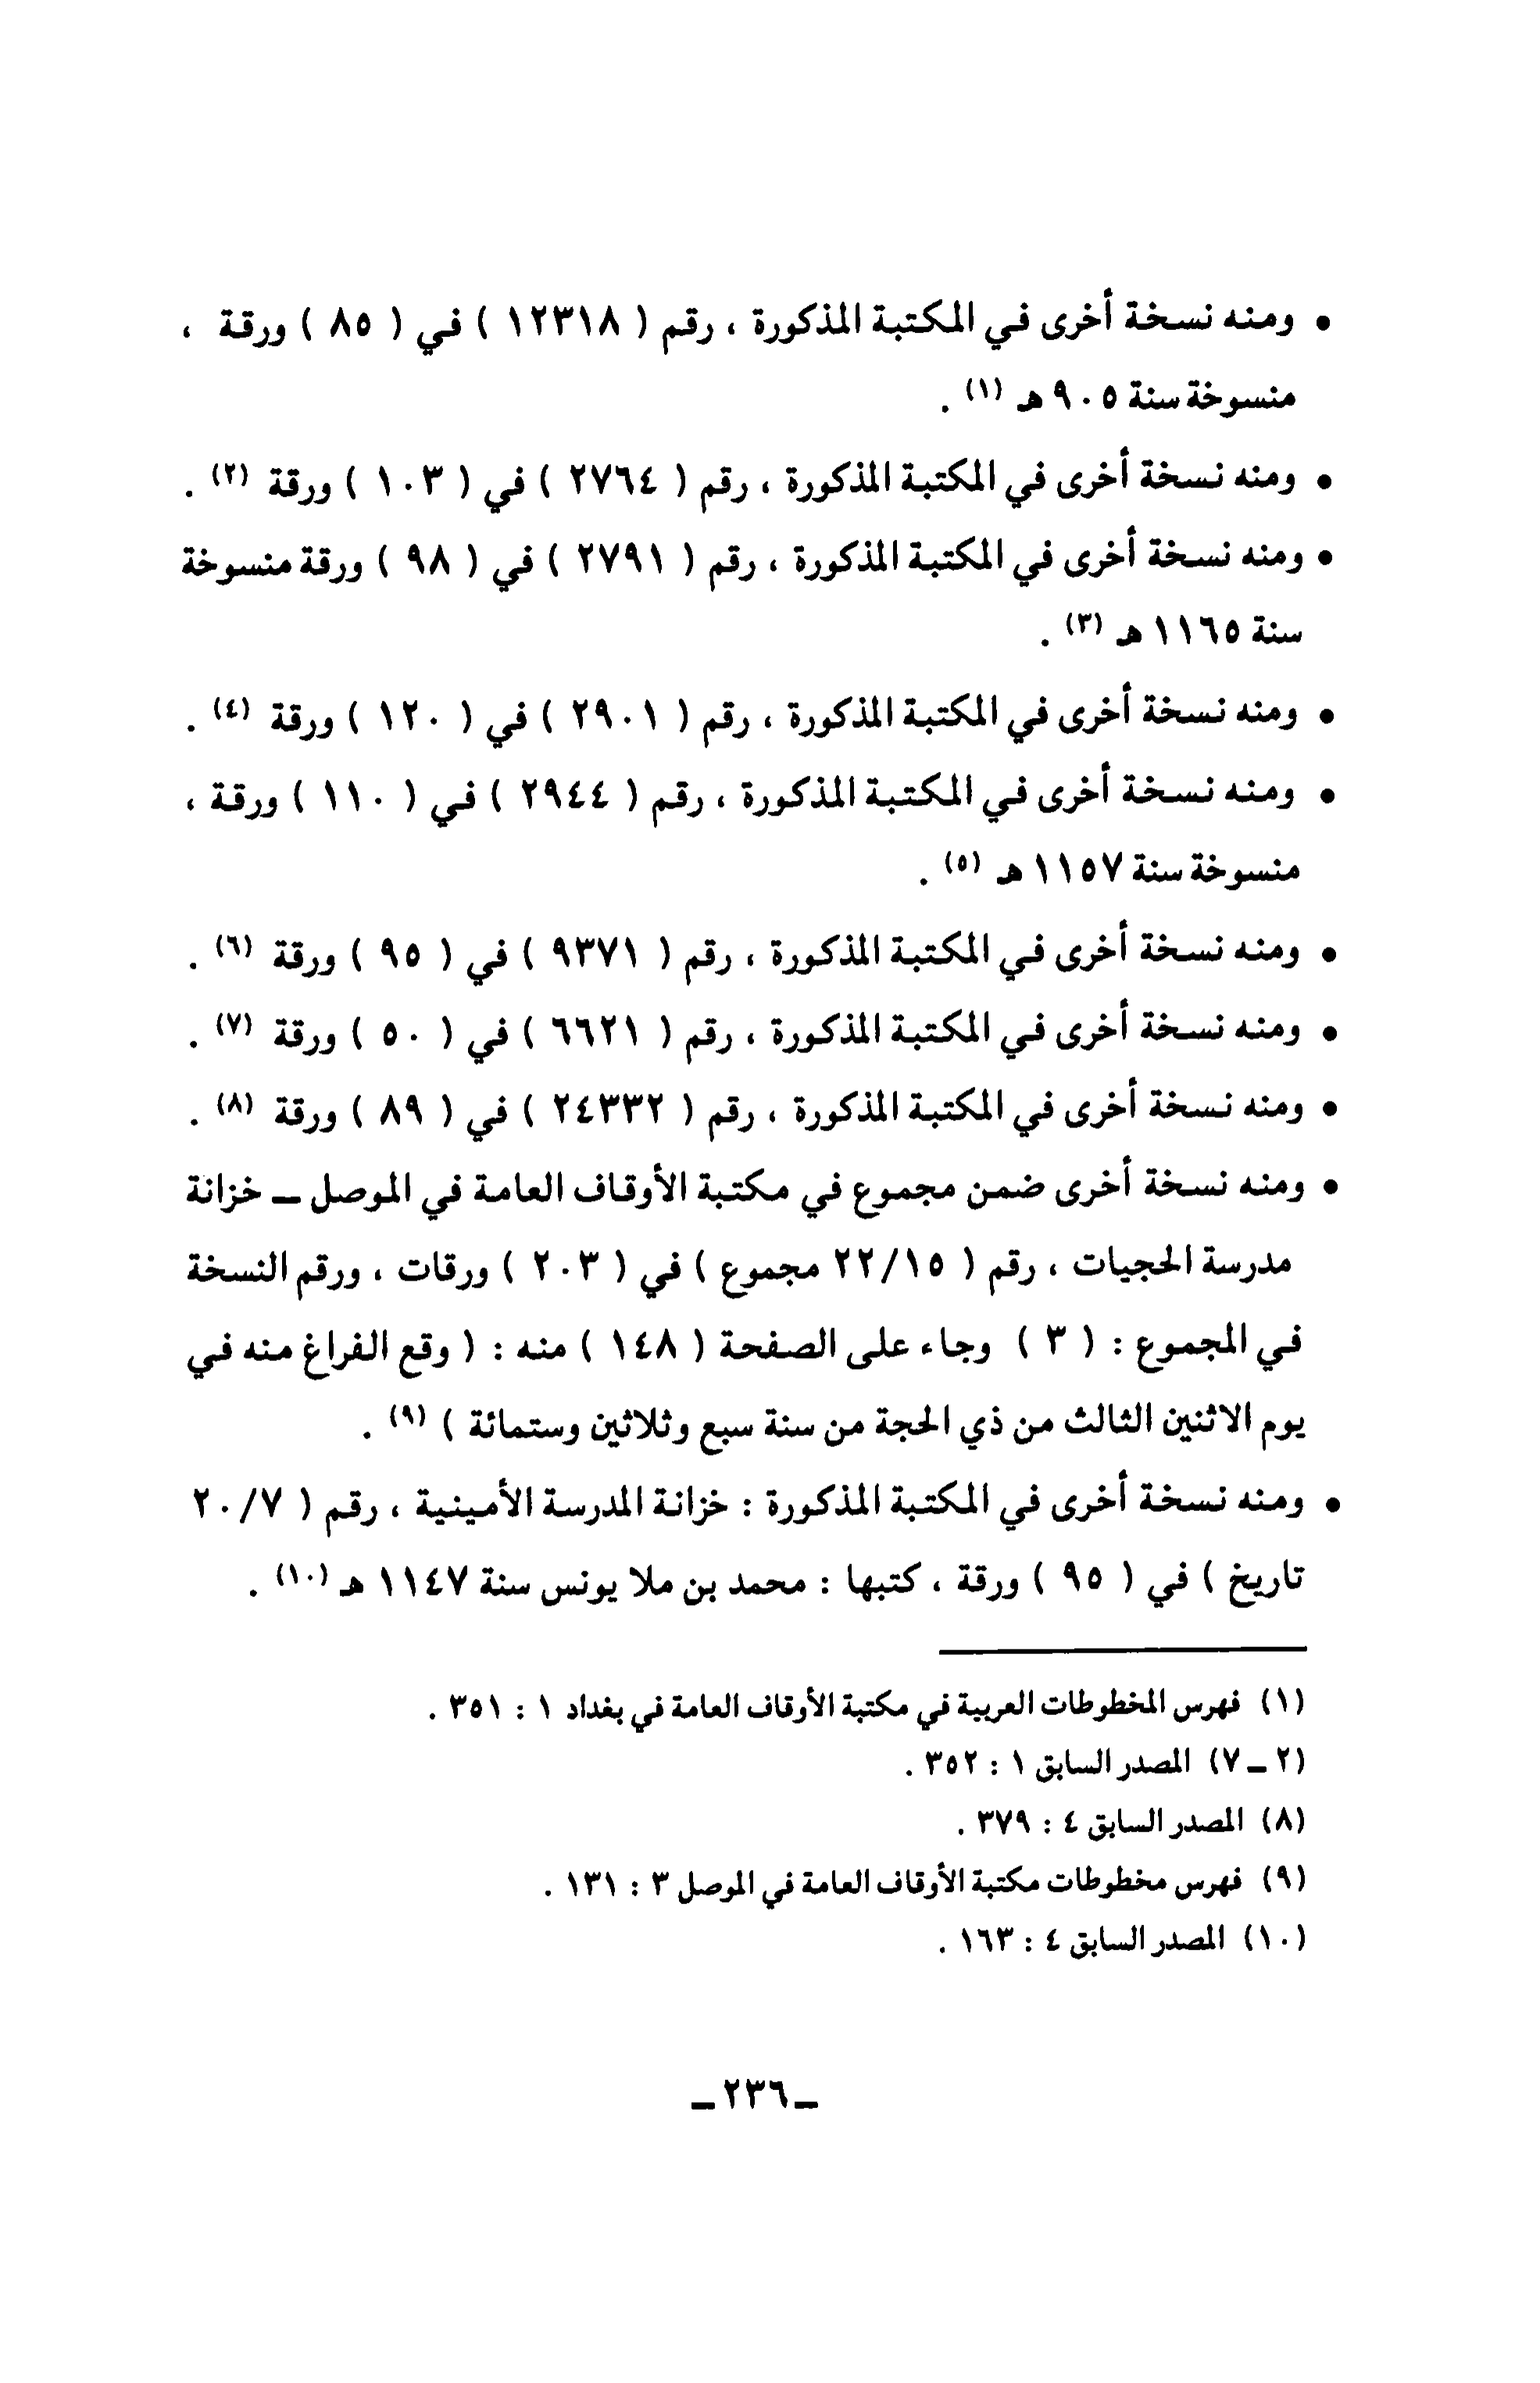 • ومنه نسخة أخرى في المكتبة المذكورة ، رقم ( ١٢٣١٨ ) في ( ٨٥ ) ورقة ،
منسوخة سنة ٩٠٥ هـ (١) .
• ومنه نسخة أخرى في المكتبة المذكورة ، رقم ( ٢٧٦٤ ) في ( ١٠٣ ) ورقة (٢) .
• ومنه نسخة أخرى في المكتبة المذكورة ، رقم ( ٢٧٩١ ) في ( ٩٨ ) ورقة منسوخة
سنة ١١٦٥ هـ (٣) .
• ومنه نسخة أخرى في المكتبة المذكورة ، رقم ( ٢٩٠١ ) في ( ١٢٠ ) ورقة (٤) .
• ومنه نسخة أخرى في المكتبة المذكورة ، رقم ( ٢٩٤٤ ) في ( ١١٠ ) ورقة ،
منسوخة سنة ١١٥٧ هـ (٥) .
• ومنه نسخة أخرى في المكتبة المذكورة ، رقم ( ٩٣٧١ ) في ( ٩٥ ) ورقة (٦) .
• ومنه نسخة أخرى في المكتبة المذكورة ، رقم ( ٦٦٢١ ) في ( ٥٠ ) ورقة (٧) .
• ومنه نسخة أخرى في المكتبة المذكورة ، رقم ( ٢٤٣٣٢ ) في ( ٨٩ ) ورقة (٨) .
• ومنه نسخة أخرى ضمن مجموع في مكتبة الأوقاف العامة في الموصل ــ خزانة
مدرسة الحجيات ، رقم ( ٢٢/١٥ مجموع ) في ( ٢٠٣ ) ورقات ، ورقم النسخة
في المجموع : ( ٣ ) وجاء على الصفحة ( ١٤٨ ) منه : ( وقع الفراغ منه في
يوم الاثنين الثالث من ذي الحجة من سنة سبع وثلاثين وستمائة ) (٩) .
• ومنه نسخة أخرى في المكتبة المذكورة : خزانة المدرسة الأمينية ، رقم ( ٢٠/٧
تاريخ ) في ( ٩٥ ) ورقة ، كتبها : محمد بن ملا يونس سنة ١١٤٧ هـ (١٠) .
(١) فهرس المخطوطات العربية في مكتبة الأوقاف العامة في بغداد ١ : ٣٥١ .
(٢ ـ ٧) المصدر السابق ١ : ٣٥٢ .
(٨) المصدر السابق ٤ : ٣٧٩ .
(٩) فهرس مخطوطات مكتبة الأوقاف العامة في الموصل ٣ : ١٣١ .
(١٠) المصدر السابق ٤ : ١٦٣ .
ـ ٢٣٦ ـ